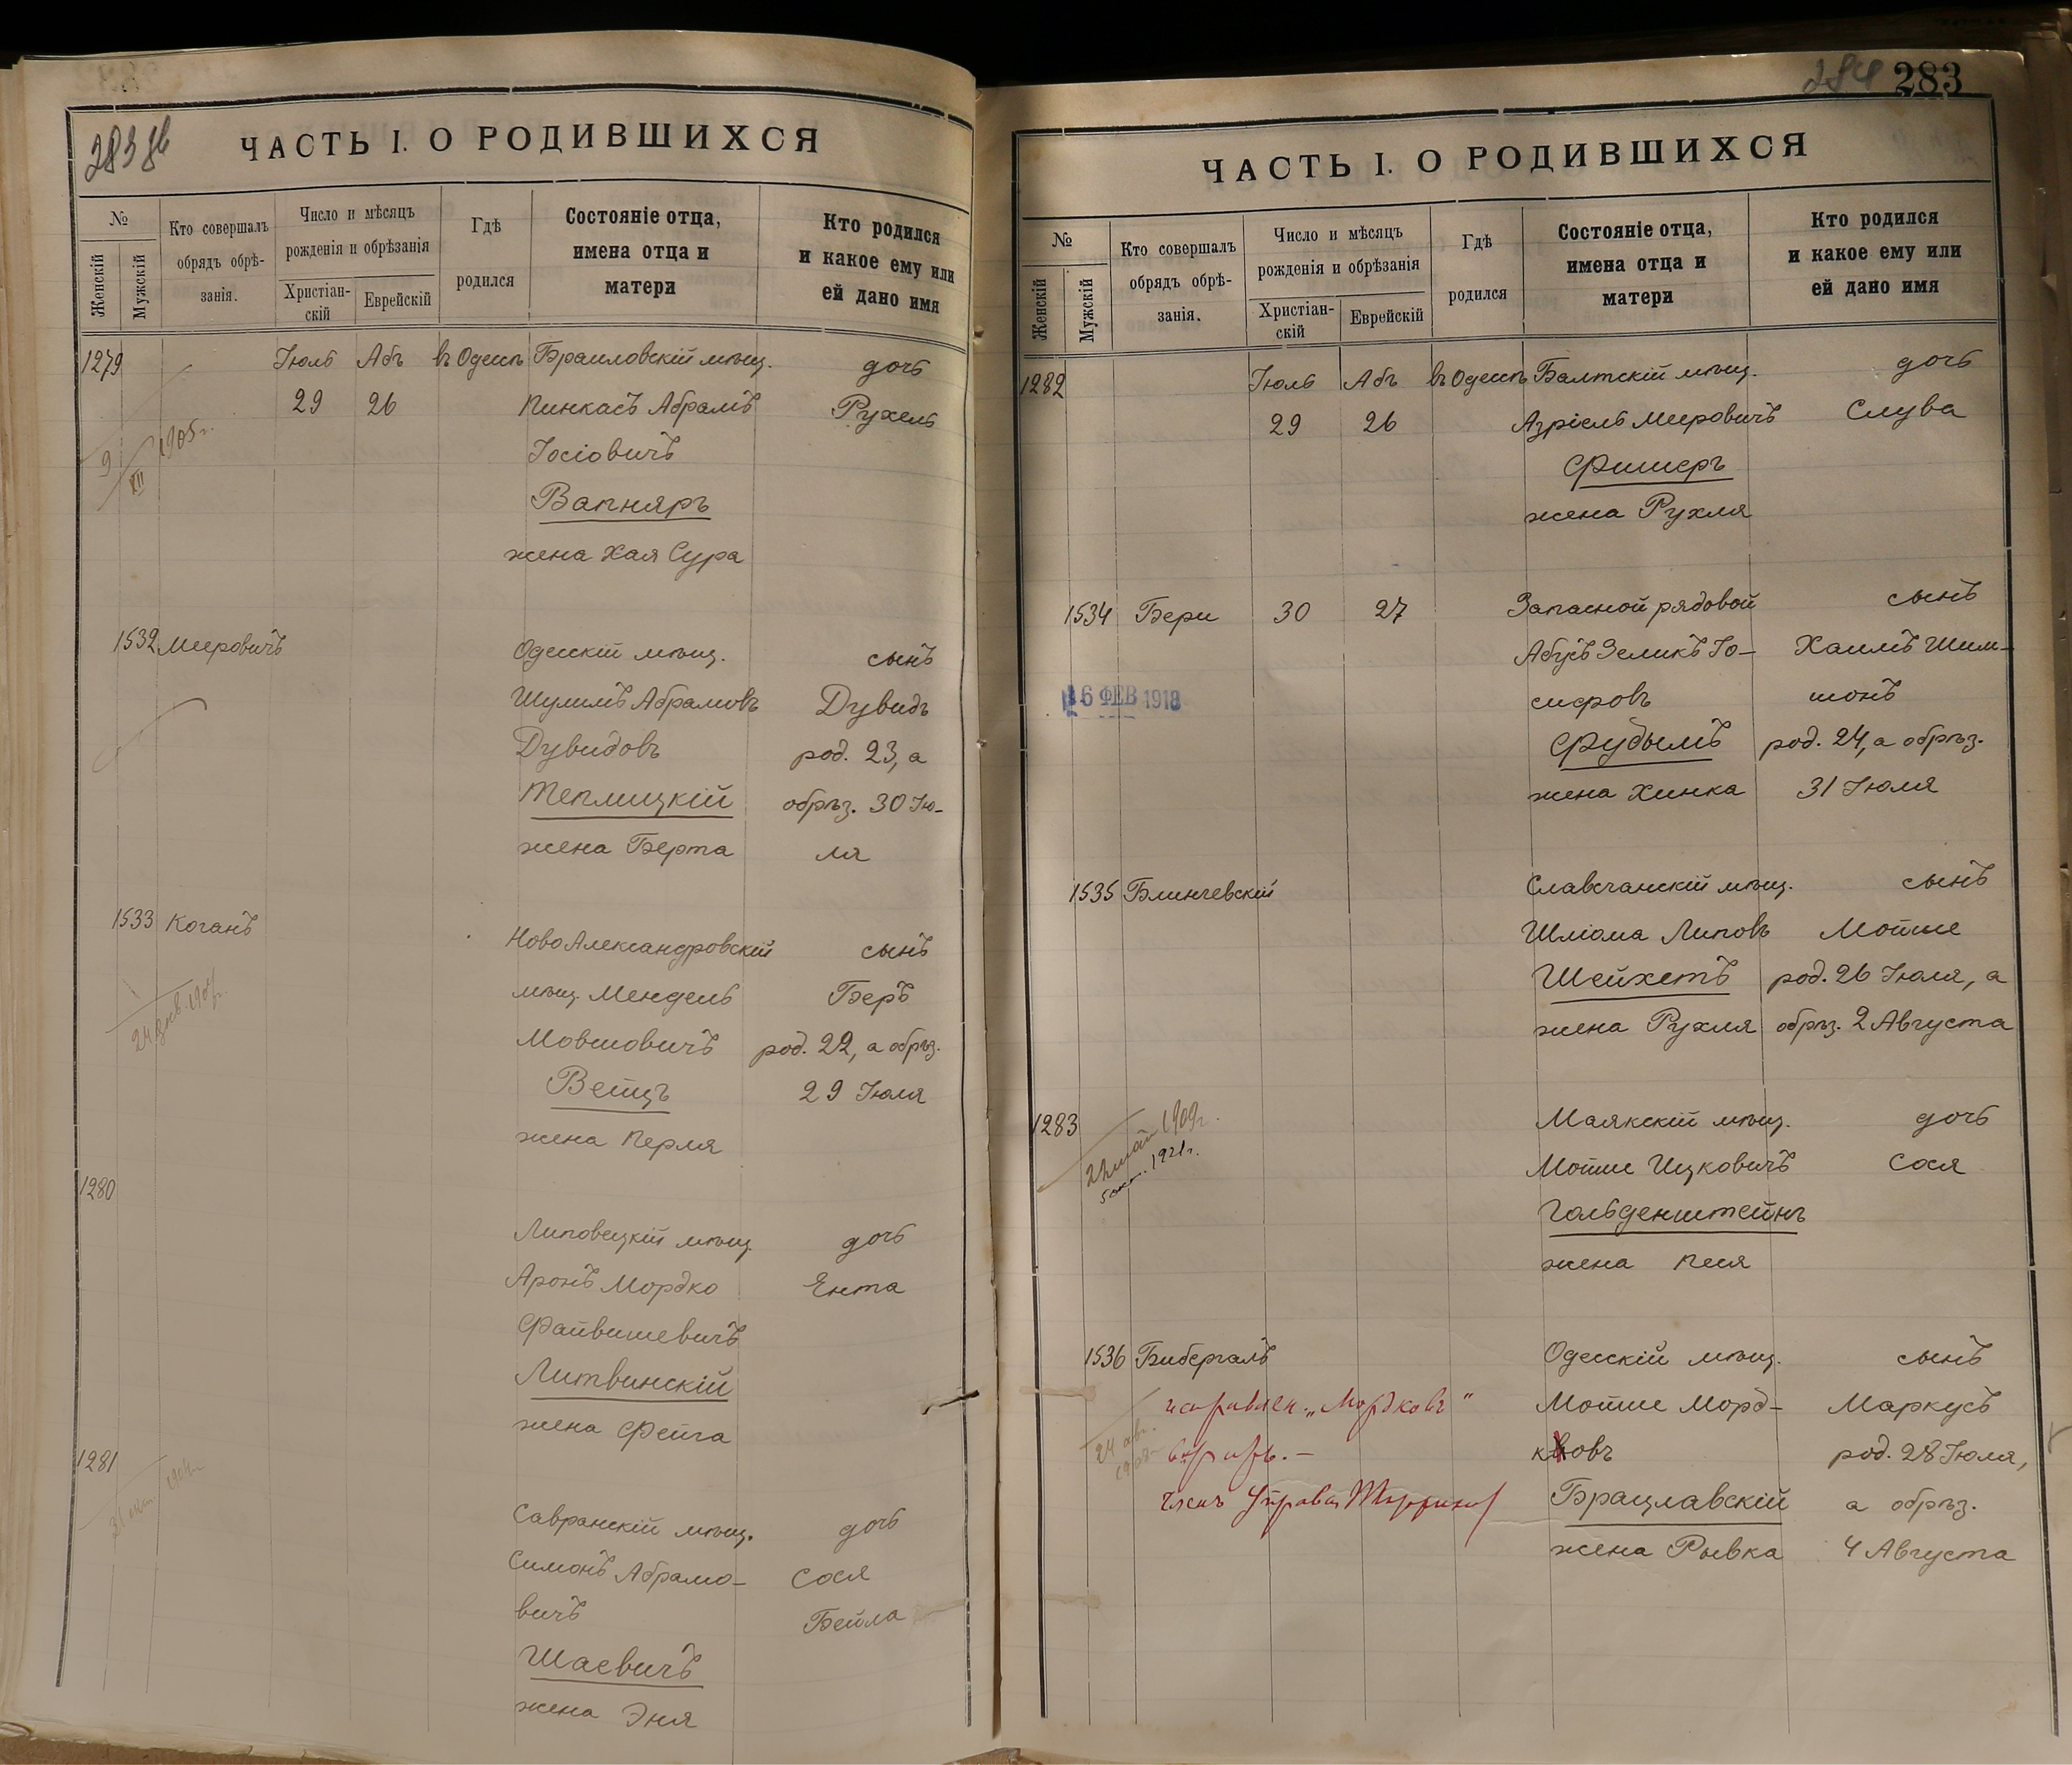 283 об
ЧАСТЬ I. О РОДИВШИХСЯ
№
Женскій
Мужскій
Кто совершалъ
обрядъ обрѣ-
занія.
Число и мѣсяцъ
рожденія и обрѣзанія
Христіан-
скій
Еврейскій
Гдѣ
родился
Состояніе отца,
имена отца и
матери
Кто родился
и какое ему или
ей дано имя
1279 Іюль Абъ въ Одессѣ Браиловскій мѣщ. дочь
29 26 Пинкасъ Абрамъ Рухель
9/XII 1905 г.
Іосіовичъ
Вапняръ
жена Хая Сура
1532 Мееровичъ Одесскій мѣщ. сынъ
Шулимъ Абрамовъ Дувидъ
Дувидовъ род. 23, а
Теплицкій обрѣз. 30 Ію-
жена Берта ля
1533 Коганъ НовоАлександровскій сынъ
мѣщ. Мендель Беръ
Мовшовичъ род. 22, а обрѣз.
Вейцъ 29 Іюля
жена Перля
1280
Липовецкій мѣщ. дочь
Аронъ Мордко Ента
Файвишевичъ
Литвинскій
жена Фейга
1281
Савранскій мѣщ. дочь
Симонъ Абрамо- Сося
вичъ Бейла
Шаевичъ
жена Эня
284 283
ЧАСТЬ I. О РОДИВШИХСЯ
№
Женскій
Мужскій
Кто совершалъ
обрядъ обрѣ-
занія.
Число и мѣсяцъ
рожденія и обрѣзанія
Христіан-
скій
Еврейскій
Гдѣ
родился
Состояніе отца,
имена отца и
матери
Кто родился
и какое ему или
ей дано имя
1282 Іюль Абъ въ Одессѣ Балтскій мѣщ. дочь
29 26 Азріель Меровичъ Слува
Фишеръ
жена Рухля
1534 Бери 30 27 Запасной рядовой сынъ
Абусъ Зеликъ Іо- Хаимъ Шим-
16 ФЕВ 1918 сифовъ шонъ
Фудымъ род. 24, а обрѣз.
жена Хинка 31 Іюля
1535 Блинчевскій Славечанскій мѣщ. сынъ
Шліома Липовъ Мотше
Шейхетъ род. 26 Іюля, а
жена Рухля обрѣз. 2 Августа
1283 Маякскій мѣщ. дочь
22 май 1909 г.
5 окт. 1921 г.
Мотше Ицковичъ Сося
Гольденштейнъ
жена Песя
1536 Бибергалъ Одесскій мѣщ. сынъ
исправлен. „Мордковъ" Мотше Морд- Маркусъ
24 авг. ковъ род. 28 Іюля,
Членъ Управы Брацлавскій а обрѣз.
жена Рывка 4 Августа